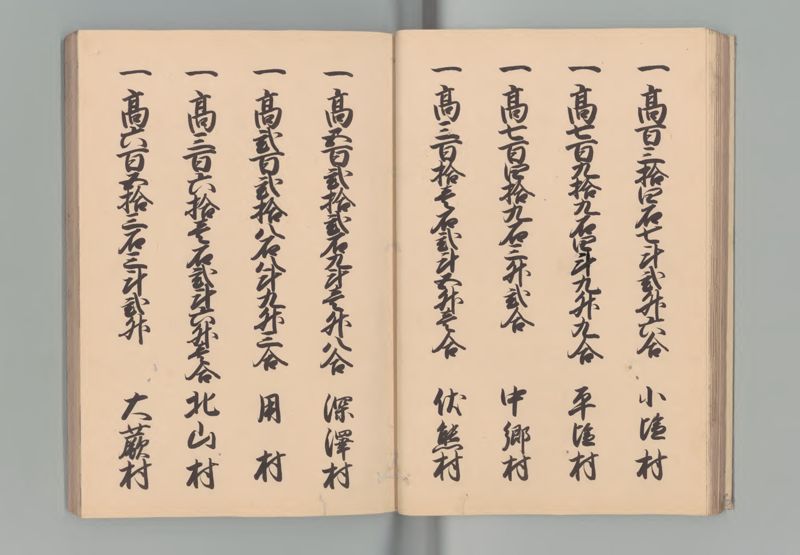 一高百三拾四石七斗弐升六合 小塩村
一高七百九拾九石四斗九升九合 平塩村
一高七百四拾九石三升弐合 中郷村
一高三百拾壱石弐斗五升壱合 伏熊村
一高五百弐拾弐石九斗壱升八合 深澤村
一高弐百弐拾八石八斗九升三合 用村
一高三百六拾壱石弐斗六升壱合 北山村
一高六百五拾三石三斗弐升 大蕨村